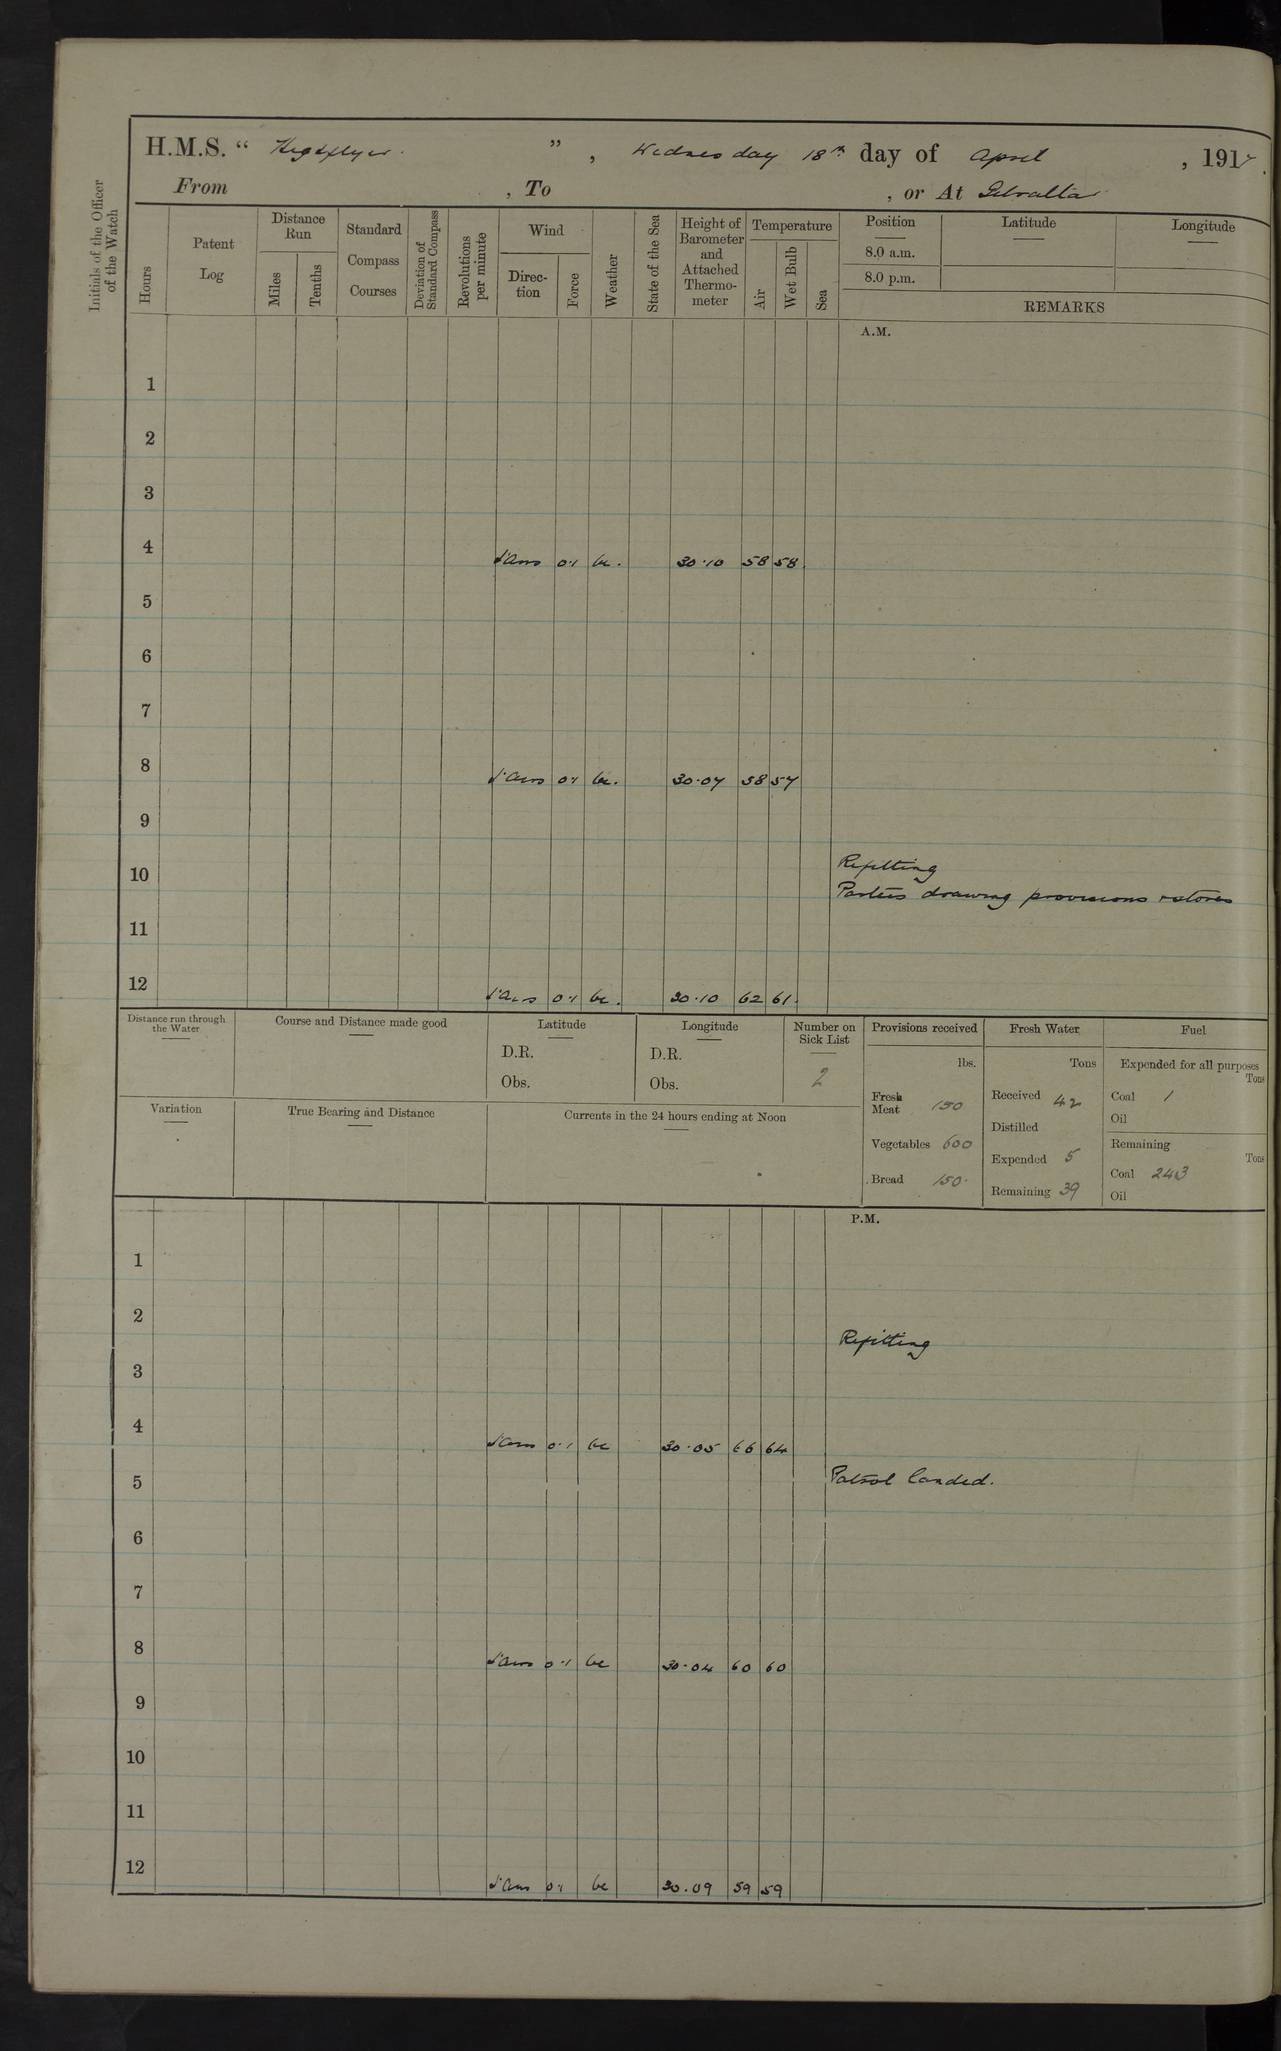 H.M.S. “ Highflyer ” , Wednesday 18th day of April , 1917.
From , To , or At Gibraltar
Initials of the Officer of the Watch
Hours
Patent Log
Distance Run
Miles
Tenths
Standard Compass Courses
Deviation of Standard Compass
Revolutions per minute
Wind
Direc-tion
Force
Weather
State of the Sea
Height of Barometer and Attached Thermo-meter
Temperature
Air
Wet Bulb
Sea
Position Latitude Longitude
8.0 a.m.
8.0 p.m.
REMARKS
A.M.
1
2
3
4 0.1 bc. 30.10 58 58
5
6
7
8 0.1 bc. 30.07 58 57
9
Refitting
10
Parties drawing provisions & stores
11
12 0.1 bc. 30.10 62 61.
Distance run through the Water
Course and Distance made good
Latitude
D.R.
Obs.
Longitude
D.R.
Obs.
Number on Sick List
2
Provisions received
lbs.
Fresh Meat 150
Vegetables 600
Bread 150.
Fresh Water
Tons
Received 42
Distilled
Expended 5
Remaining 39
Fuel
Expended for all purposes
Tons
Coal 1
Oil
Remaining
Tons
Coal 243
Oil
Variation
True Bearing and Distance
Currents in the 24 hours ending at Noon
P.M.
1
2
Refitting
3
4 0.1 bc 30.05 66 64
Patrol landed.
5
6
7
8 0.1 bc 30.04 60 60
9
10
11
12 0.1 bc 30.09 59 59